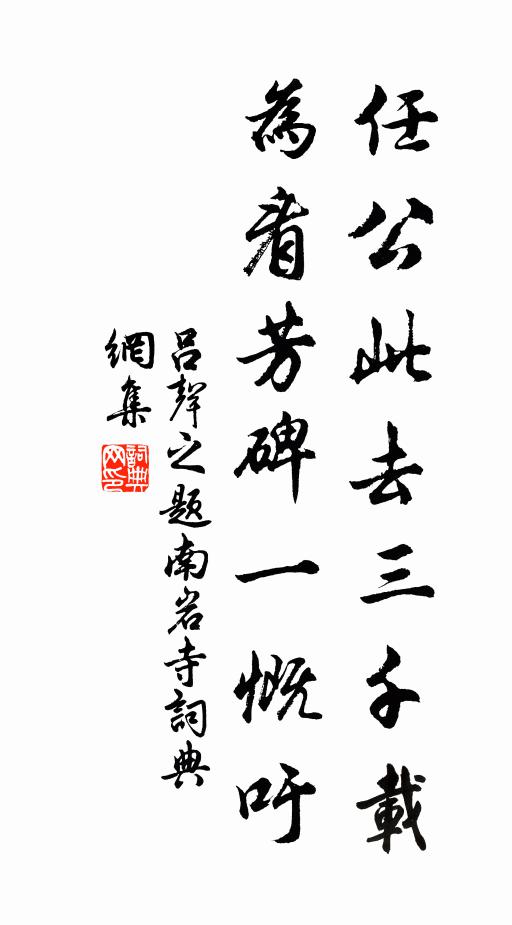 任公此去三千載
為看芳碑一慨吁
呂聲之題南岩寺詞典
網集
詞典
网印